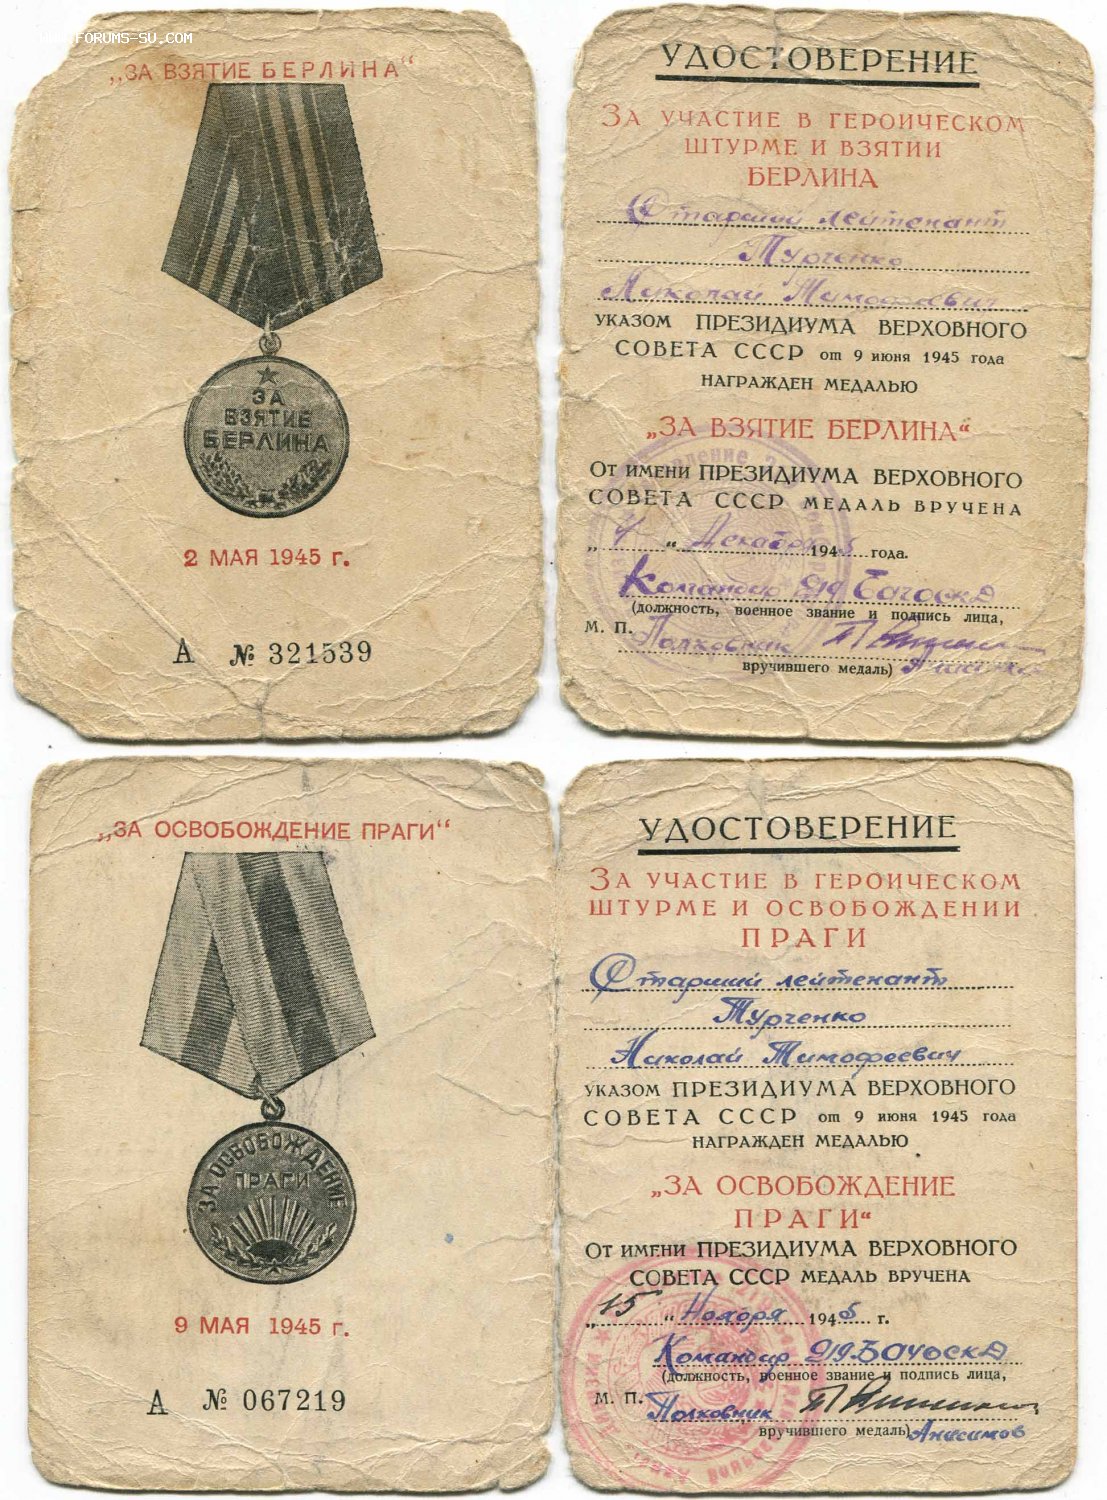 FORUMS-SU.COM
„ЗА ВЗЯТИЕ БЕРЛИНА“
ЗА
ВЗЯТИЕ
БЕРЛИНА
2 МАЯ 1945 г.
А № 321539
УДОСТОВЕРЕНИЕ
ЗА УЧАСТИЕ В ГЕРОИЧЕСКОМ
ШТУРМЕ И ВЗЯТИИ
БЕРЛИНА
Старший лейтенант
Турченко
Николай Тимофеевич
УКАЗОМ ПРЕЗИДИУМА ВЕРХОВНОГО
СОВЕТА СССР от 9 июня 1945 года
НАГРАЖДЕН МЕДАЛЬЮ
„ЗА ВЗЯТИЕ БЕРЛИНА“
ОТ ИМЕНИ ПРЕЗИДИУМА ВЕРХОВНОГО
СОВЕТА СССР МЕДАЛЬ ВРУЧЕНА
„4“ Декабря 1945 года.
Командир
(должность, военное звание и подпись лица,
М. П. Полковник
вручившего медаль)
„ЗА ОСВОБОЖДЕНИЕ ПРАГИ“
ЗА ОСВОБОЖДЕНИЕ
ПРАГИ
9 МАЯ 1945 г.
А № 067219
УДОСТОВЕРЕНИЕ
ЗА УЧАСТИЕ В ГЕРОИЧЕСКОМ
ШТУРМЕ И ОСВОБОЖДЕНИИ
ПРАГИ
Старший лейтенант
Турченко
Николай Тимофеевич
УКАЗОМ ПРЕЗИДИУМА ВЕРХОВНОГО
СОВЕТА СССР от 9 июня 1945 года
НАГРАЖДЕН МЕДАЛЬЮ
„ЗА ОСВОБОЖДЕНИЕ
ПРАГИ“
ОТ ИМЕНИ ПРЕЗИДИУМА ВЕРХОВНОГО
СОВЕТА СССР МЕДАЛЬ ВРУЧЕНА
„15“ Ноября 1945 г.
Командир
(должность, военное звание и подпись лица,
М. П. Полковник
вручившего медаль) Анисимов